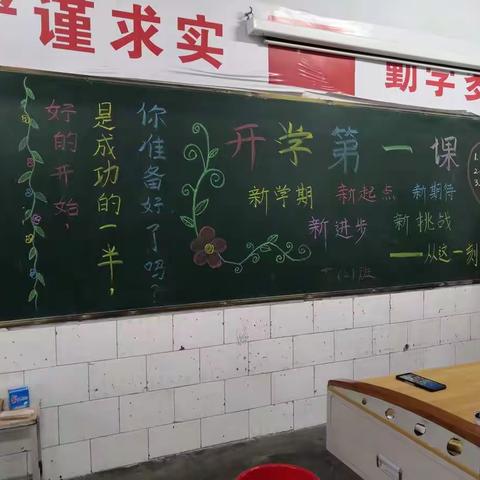 谨求实
勤学
好的开始，
是成功的一半，
你准备好了吗？
开学第一课
新学期 新起点 新期待
新进步 新挑战
——从这一刻
(2)班
1.
2.
3.